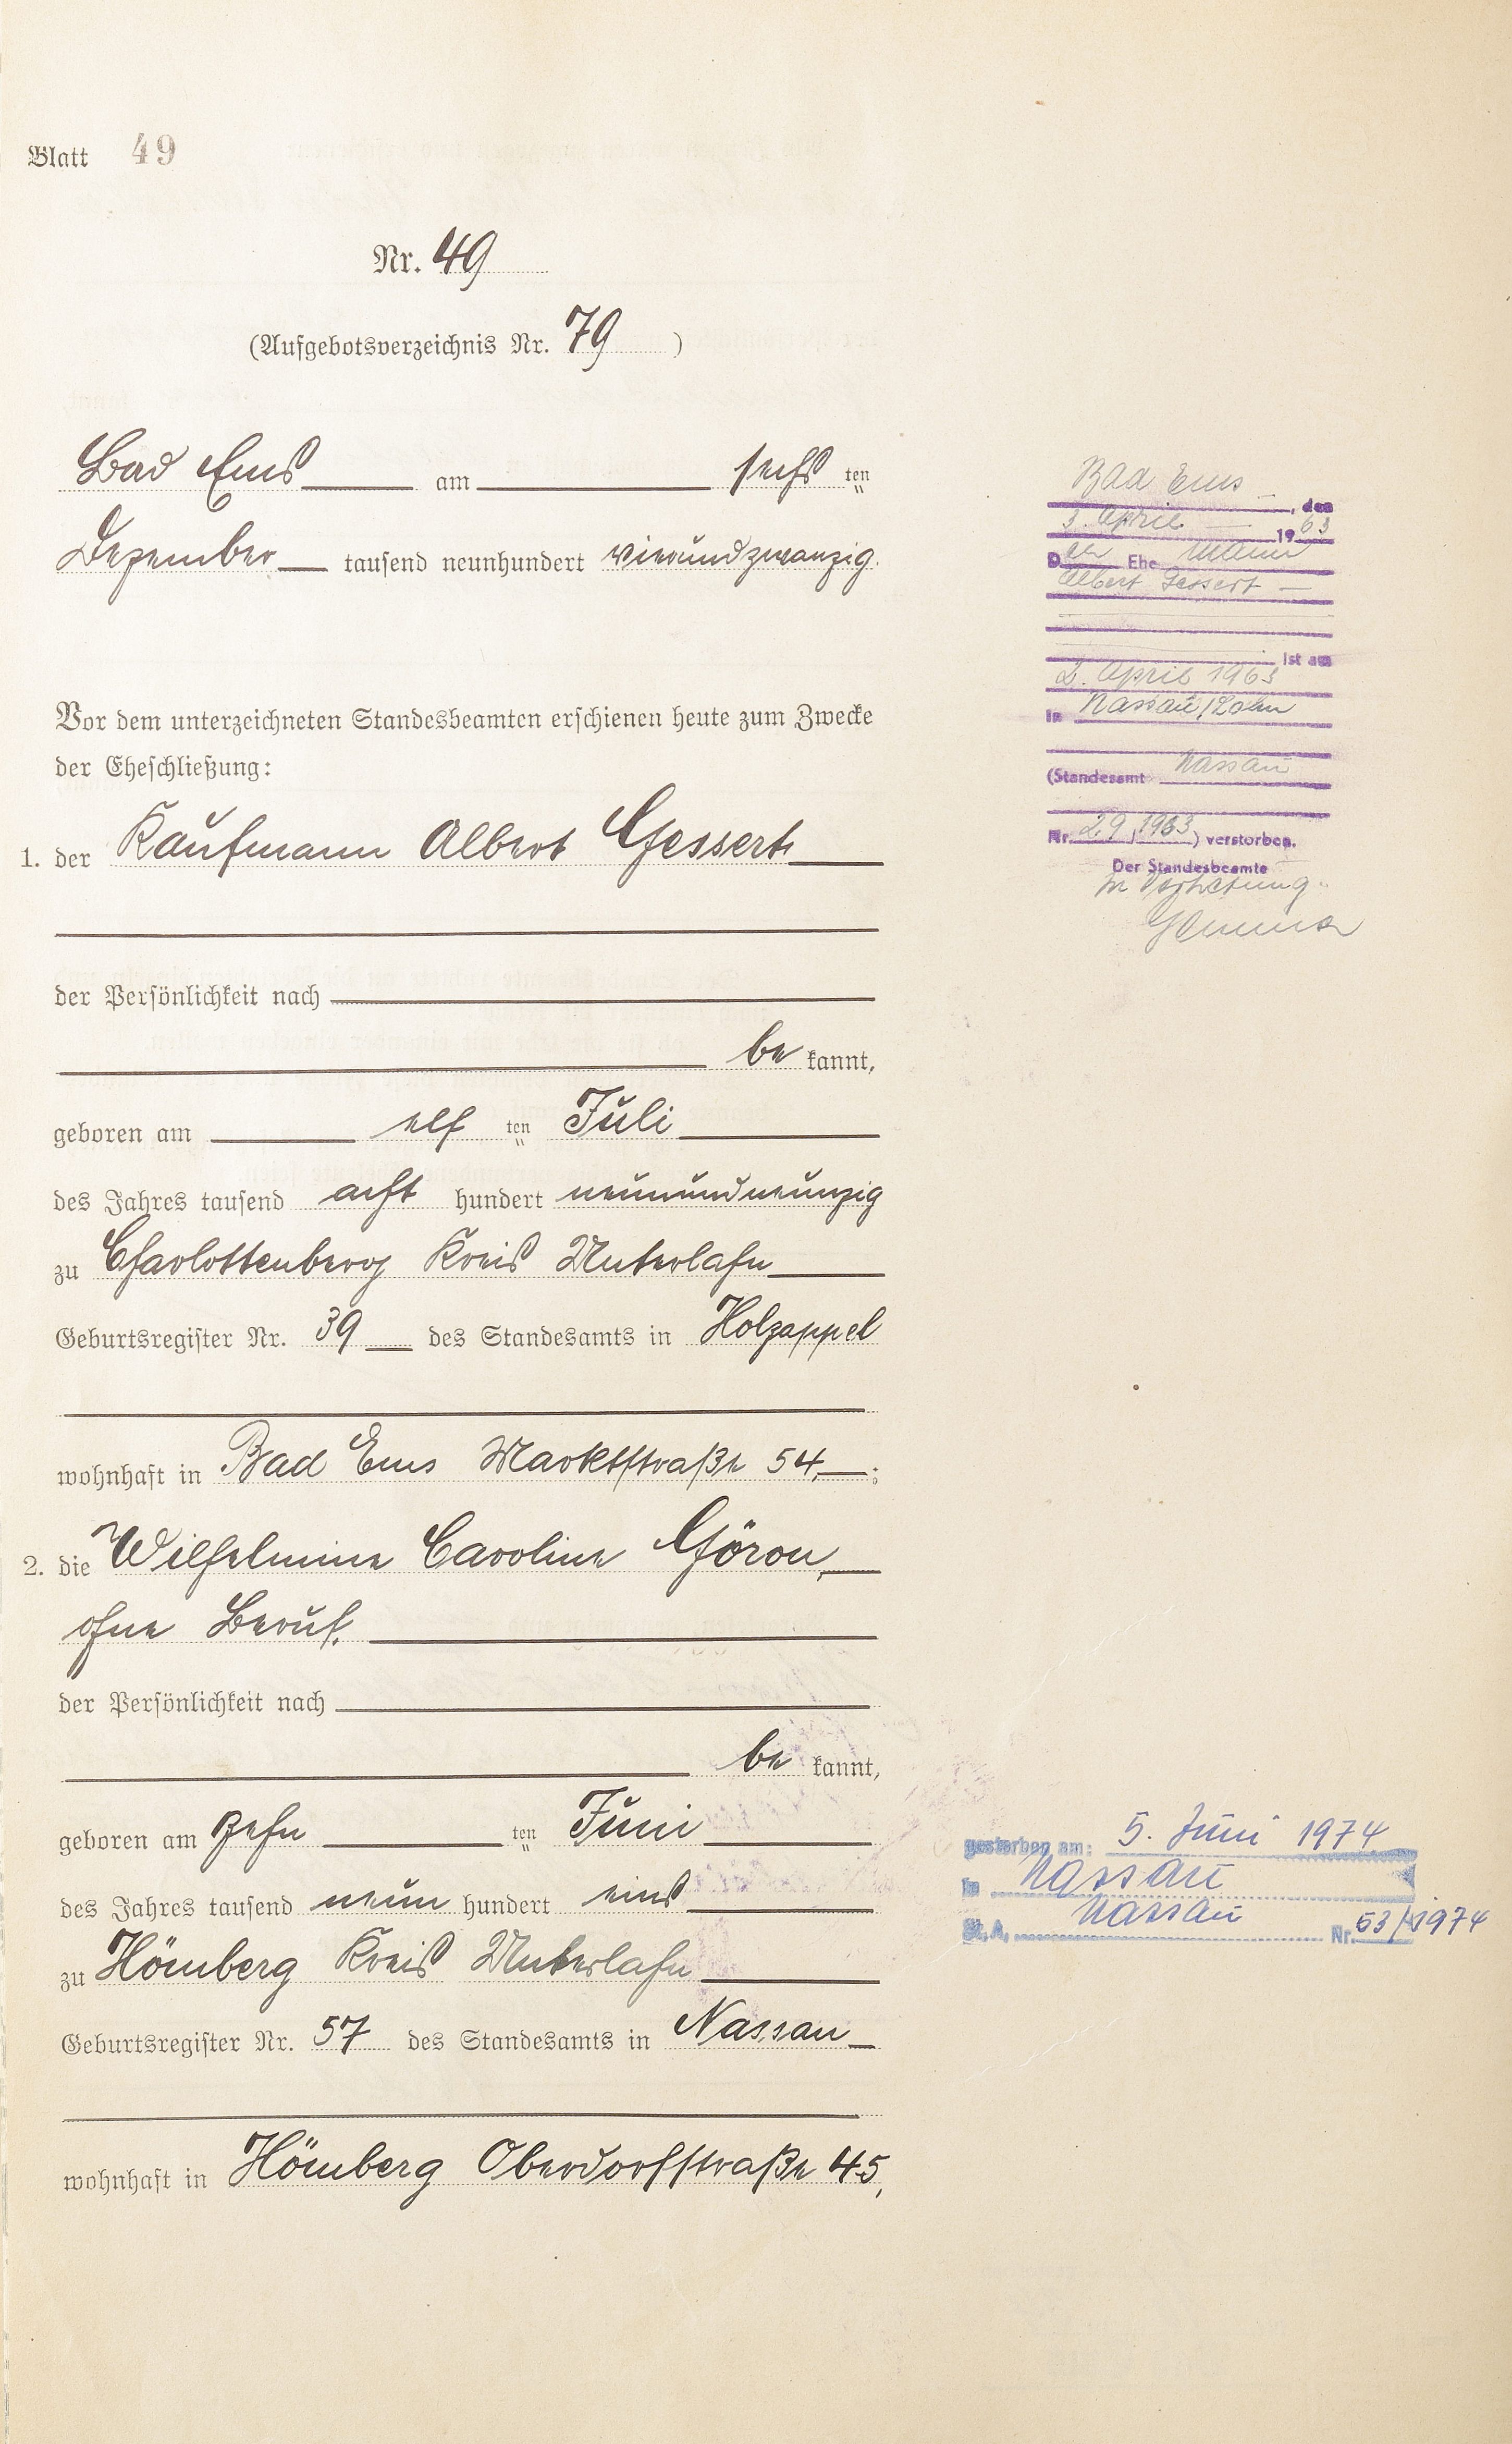 Blatt 49
Nr. 49
(Aufgebotsverzeichnis Nr. 79)
Bad Ems am sechs ten
Dezember tausend neunhundert vierundzwanzig.
Vor dem unterzeichneten Standesbeamten erschienen heute zum Zwecke
der Eheschließung:
1. der Kaufmann Albert Gessert
der Persönlichkeit nach
be kannt,
geboren am elf ten Juli
des Jahres tausend acht hundert neunundneunzig
zu Charlottenberg Kreis Unterlahn
Geburtsregister Nr. 39 des Standesamts in Holzappel
wohnhaft in Bad Ems Marktstraße 54;
2. die Wilhelmine Caroline Göron,
ohne Beruf.
der Persönlichkeit nach
be kannt,
geboren am zehn ten Juni
des Jahres tausend neun hundert eins
zu Hömberg Kreis Unterlahn
Geburtsregister Nr. 57 des Standesamts in Nassau
wohnhaft in Hömberg Oberdorfstraße 45,
Bad Ems, den
3. April 1963
Der Ehe mann
Albert Gessert
ist am
2. April 1963
in Nassau/Lahn
(Standesamt Nassau
Nr. 29/1963) verstorben.
Der Standesbeamte
In Vertretung
gestorben am: 5. Juni 1974
in Nassau
St. A. Nassau Nr. 63/1974